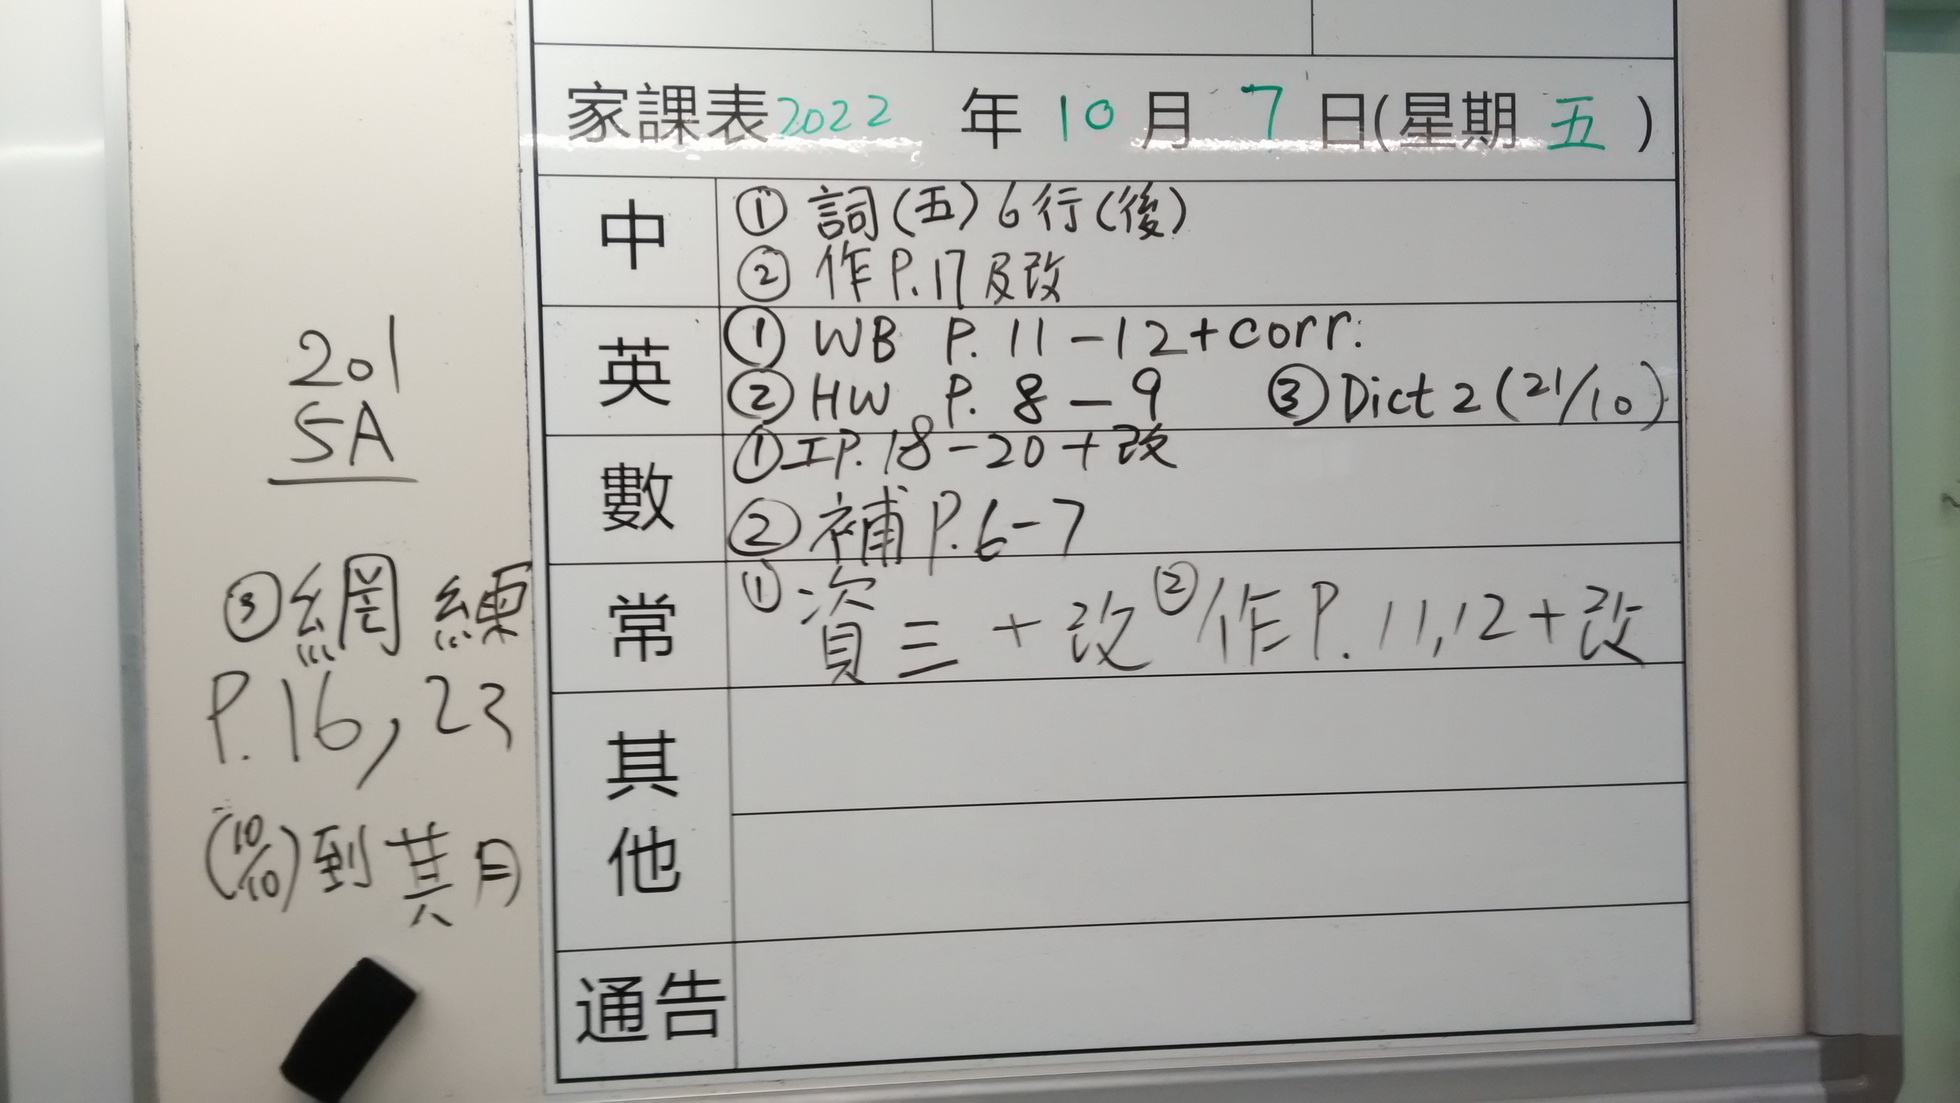 家課表2022 年 10 月 7 日(星期 五 )
中
① 詞(五)6行(後)
② 作P.17及改
英
① WB P.11-12+corr.
② HW P.8-9 ③Dict 2(21/10)
數
①工P.18-20+改
②補P.6-7
常
①資三+改②作P.11,12+改
其
他
通告
201
5A
③網練
P.16,23
(10/10)到其月